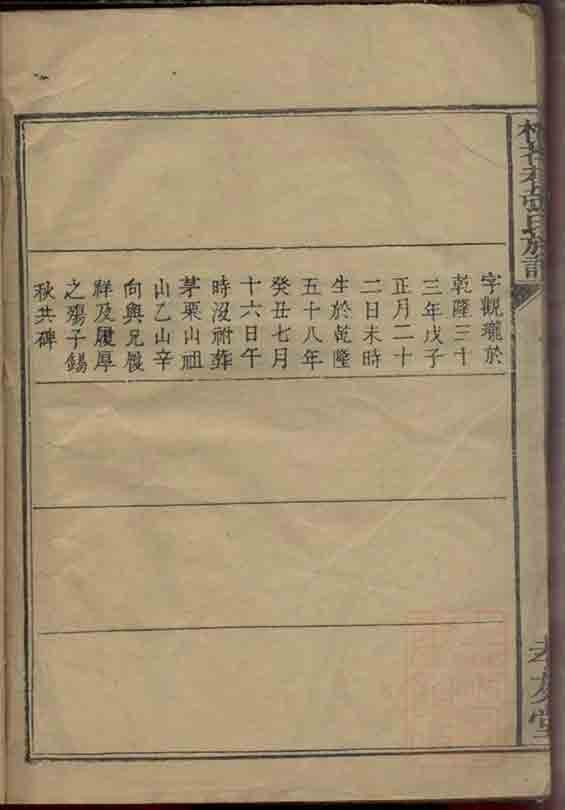 氏族譜
孝友堂
字觀瓏於
乾隆三十
三年戊子
正月二十
二日未時
生於乾隆
五十八年
癸丑七月
十六日午
時沒祔葬
茅栗山祖
山乙山辛
向與兄履
祥及履厚
之殤子錫
秋共碑